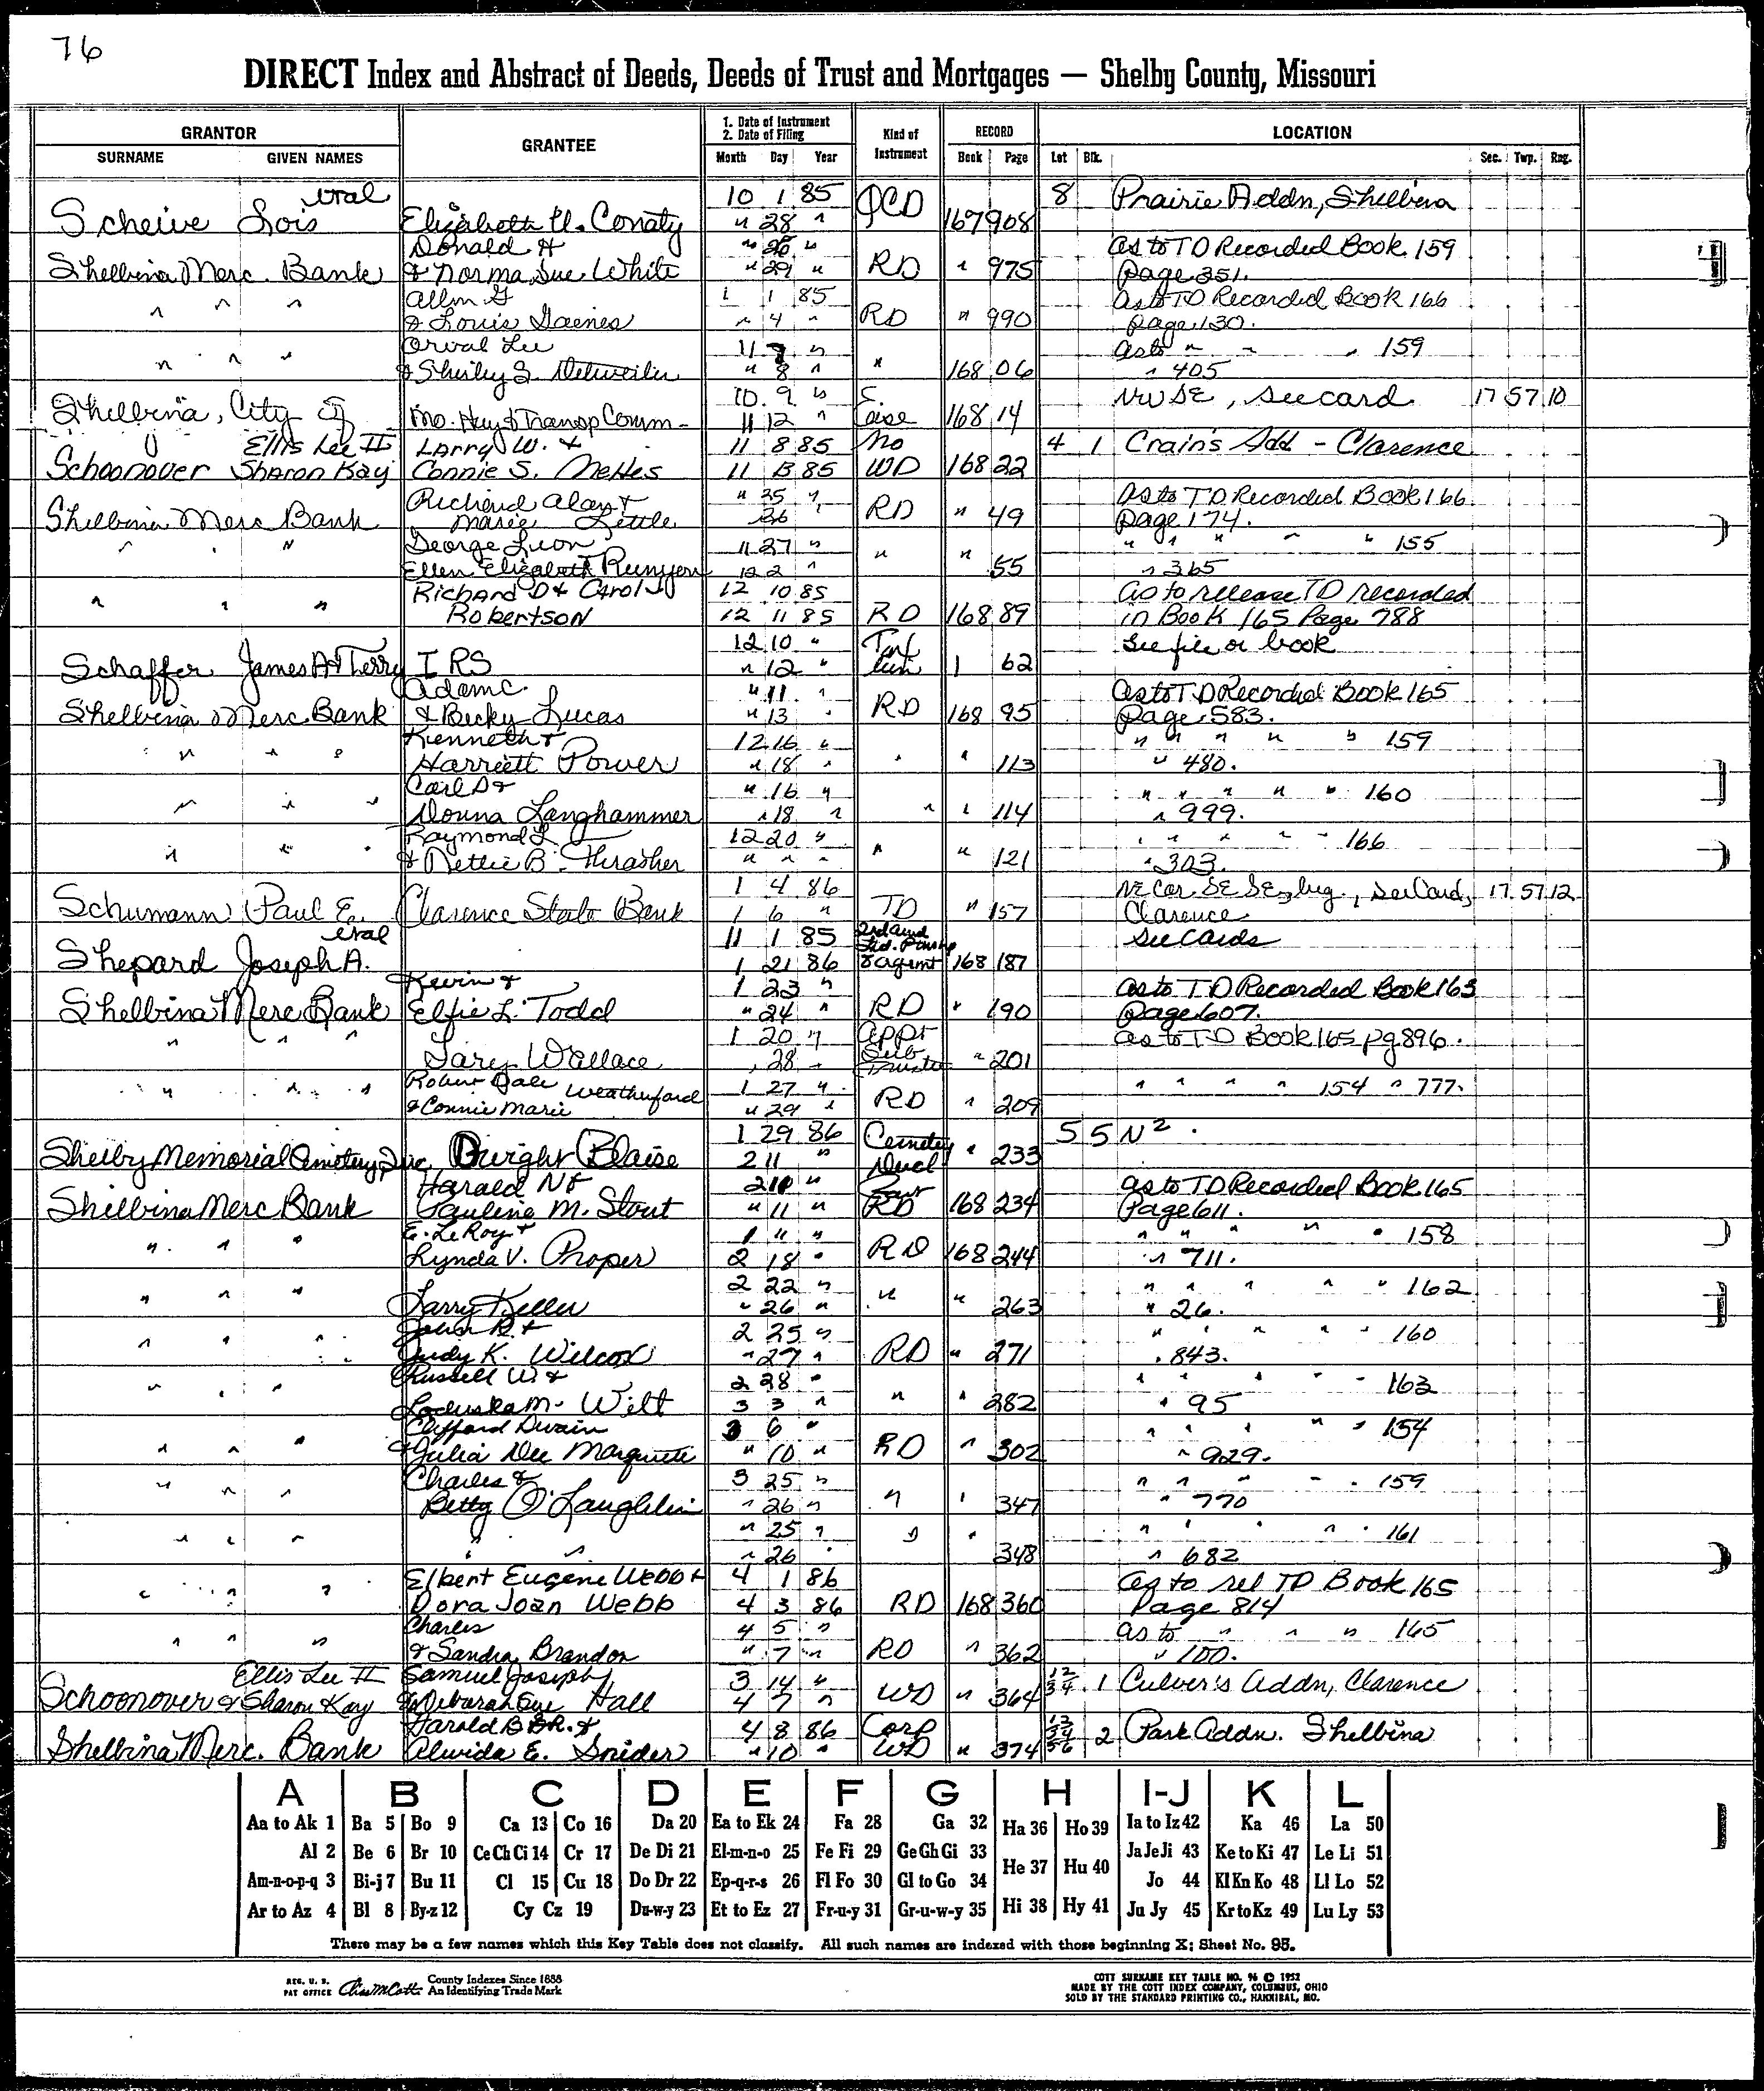 76
DIRECT Index and Abstract of Deeds, Deeds of Trust and Mortgages — Shelby County, Missouri
GRANTOR GRANTEE 1. Date of Instrument 2. Date of Filing Kind of Instrument RECORD LOCATION
SURNAME GIVEN NAMES Month Day Year Book Page Lot Blk. Sec. Twp. Rng.
etal 10 1 85 QCD 8 Prairie Addn, Shelbina
Scheive Lois Elizabeth U. Conaty " 28 " 167 908
Donald H " 28 " As to TD Recorded Book 159
Shelbina Merc. Bank & Norma Sue White " 29 " RD " 975 page 351.
Allen G 1 1 85 As to TD Recorded Book 166
" " " & Louis Gaines " 4 " RD " 990 page 130.
Orval Lee 11 7 " As to " " " 159
" " " & Shirley S. Detweiler " 8 " " 168 06 " 405
10 9 " E. NW SE, see card 17 57 10
Shelbina, City of Mo. Hwy & Transp Comm- 11 12 " ase 168 14
Ellis Lee II Larry W. & 11 8 85 Mo 4 1 Crain's Add - Clarence
Schoonover Sharon Kay Connie S. Nettles 11 13 85 WD 168 22
Richard Alan & " 25 " As to TD Recorded Book 166
Shelbina Merc Bank Marie Little 26 ' RD " 49 page 174.
George Leon 11 27 " " " " " " 155
" " " Ellen Elizabeth Runyon 12 2 " " " 55 " 365
Richard D & Carol J 12 10 85 As to release TD recorded
" " " Robertson 12 11 85 RD 168 89 in Book 165 Page 788
12 10 " Tax See file or book
Schaffer James A & Terry IRS " 12 " Lien 1 62
Adam C. " 11 " As to TD Recorded Book 165
Shelbina Merc. Bank & Becky Lucas " 13 " RD 168 95 page 583.
Kenneth & 12 16 " " " " " " 159
" " " Harriett Power " 18 " " " 113 " 480.
Carl D & " 16 " " " " " " 160
" " " Donna Langhammer " 18 " " " 114 " 999.
Raymond L 12 20 " " " " " " 166
" " " & Nettie B. Thrasher " " " " " 121 " 303.
1 4 86 NE Cor SE SE, beg., see Card, 17 57 12
Schumann Paul E. Clarence State Bank 1 6 " TD " 157 Clarence
etal 11 1 85 2nd amd See Cards
Shepard Joseph A. 1 21 86 agemt 168 187
Kevin & 1 23 " As to TD Recorded Book 163
Shelbina Merc Bank Elfie L. Todd " 24 " RD " 190 page 607.
1 20 " Appt As to TD Book 165 pg 896.
" " " Gary Wallace " 28 " Sub Trustee " 201
Robert Dale Weatherford 1 27 " " " " " 154 " 777.
" " " & Connie Marie " 29 " RD " 209
1 29 86 Cemetery 5 5 N 2.
Shelby Memorial Cemetery, Inc. Dwight Blaise 2 11 " Deed " 233
Harald N & 2 10 " As to TD Recorded Book 165
Shelbina Merc Bank Pauline M. Stout " 11 " RD 168 234 Page 611.
E. LeRoy & 1 " " " " " " " 158
" " " Lynda V. Proper 2 18 " RD 168 244 " 711.
2 22 " " " " " " 162
" " " Larry Keller " 26 " " " 263 " 26.
John R. & 2 25 " " " " " " 160
" " " Judy K. Wilcox " 27 " RD " 271 " 843.
Russell W. & 2 28 " " " " " " 163
" " " Loduska M. Wilt 3 3 " " " 282 " 95
Clifford Dwain 3 6 " " " " " " 154
" " " & Julia Dee Marquette " 10 " RD " 302 " 929.
Charles & 3 25 " " " " " " 159
" " " Betty O'Laughlin " 26 " " " 347 " 770
" 25 " " " " " " 161
" " " " " " 26 " " " 348 " 682
Elbert Eugene Webb & 4 1 86 As to rel TD Book 165
" " " Dora Joan Webb 4 3 86 RD 168 360 Page 814
Charles 4 5 " As to " " " 165
" " " & Sandra Brandon " 7 " RD " 362 " 100.
Ellis Lee II Samuel Joseph 3 14 " 12 34 1 Culver's Addn, Clarence
Schoonover & Sharon Kay & Deborah Sue Hall 4 7 " WD " 364
Harold B SR. & 4 8 86 Corp 12 34 56 2 Park Addn. Shelbina
Shelbina Merc. Bank Alwida E. Snider " 10 " WD " 374
A B C D E F G H I-J K L
Aa to Ak 1 Ba 5 Bo 9 Ca 13 Co 16 Da 20 Ea to Ek 24 Fa 28 Ga 32 Ha 36 Ho 39 Ia to Iz 42 Ka 46 La 50
Al 2 Be 6 Br 10 Ce Ch Ci 14 Cr 17 De Di 21 El-m-n-o 25 Fe Fi 29 Ge Gh Gi 33 He 37 Hu 40 Ja Je Ji 43 Ke to Ki 47 Le Li 51
Am-n-o-p-q 3 Bi-j 7 Bu 11 Cl 15 Cu 18 Do Dr 22 Ep-q-r-s 26 Fl Fo 30 Gl to Go 34 Jo 44 Kl Kn Ko 48 Ll Lo 52
Ar to Az 4 Bl 8 By-z 12 Cy Cz 19 Du-w-y 23 Et to Ez 27 Fr-u-y 31 Gr-u-w-y 35 Hi 38 Hy 41 Ju Jy 45 Kr to Kz 49 Lu Ly 53
There may be a few names which this Key Table does not classify. All such names are indexed with those beginning X; Sheet No. 95.
REG. U. S. PAT OFFICE County Indexes Since 1888 An Identifying Trade Mark
COTT SURNAME KEY TABLE NO. 96 © 1952
MADE BY THE COTT INDEX COMPANY, COLUMBUS, OHIO
SOLD BY THE STANDARD PRINTING CO., HANNIBAL, MO.